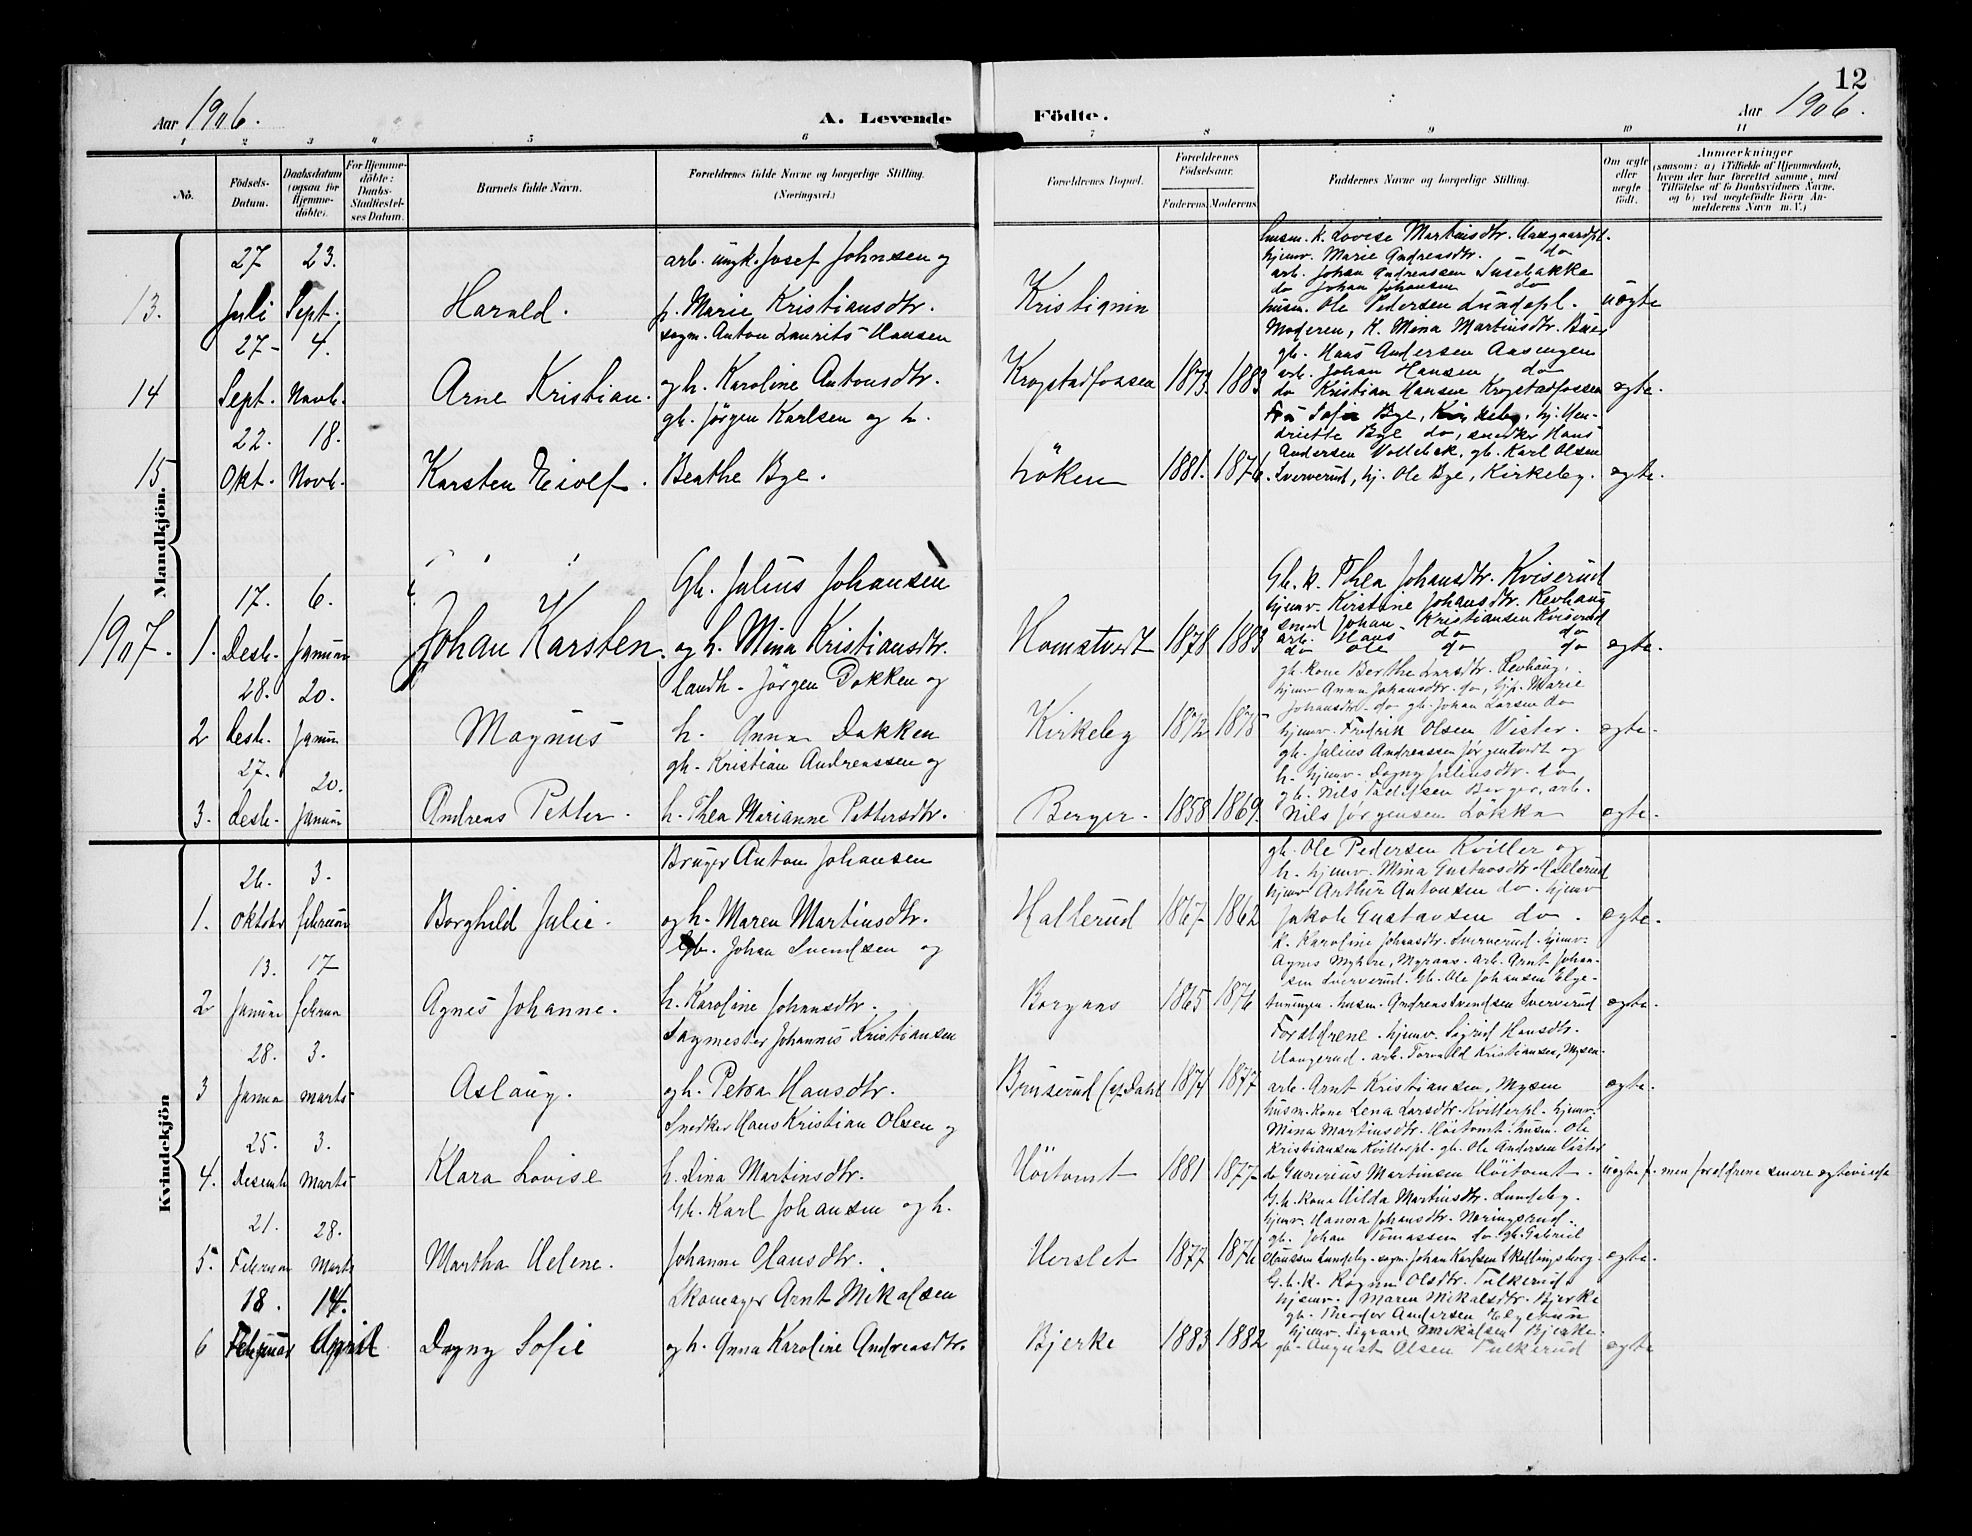 Aar 1906.
A. Levende
Födte.
12
Aar 1906.
1 2 3 4 5 6 7 8 9 10 11
No.
Födsels-Datum.
Daabsdatum (ogsaa for Hjemme-döbte).
For Hjemme-döbte: Daabs-Stadfæstel-ses Datum.
Barnets fulde Navn.
Forældrenes fulde Navne og borgerlige Stilling. (Næringsvei.)
Forældrenes Bopæl.
Forældrenes Födselsaar.
Faderens. Moderens.
Faddernes Navne og borgerlige Stilling.
Om ægte eller uægte födt.
Anmærkninger
(saasom: a) i Tilfælde af Hjemmedaab, hvem der har forrettet samme, med Tilföielse af to Daabsvidners Navne, og b) ved uægtefödte Börn An-melderens Navn m. V.)
Mandkjön.
13. 27 Juli 23. Sept. Harald.
arb. ungk. Josef Johnsen og
p. Marie Kristiansdtr.
Kristiania
husm. k. Lovise Martinsdtr. Aasgaardpl.
hjemv. Marie Andreasdtr. do
arb. Johan Andreassen Susebakke
do Johan Johansen do
husm. Ole Pedersen Lundepl.
uægte
14 27- Sept. 4. Novb. Arne Kristian.
sagm. Anton Laurits Hansen
og h. Karoline Antonsdtr.
Krogstadfossen 1873. 1883.
Moderen, K. Mina Martinsdtr.
gb. Hans Andersen Aasengen
arb. Johan Hansen do
do Kristian Hansen Krogstadfossen
ægte.
15 22. Okt. 18. Novb. Karsten Eivolf.
gb. Jörgen Karlsen og h.
Beathe Bye.
Löken 1881. 1876.
Sofie Bye, Kirkeby, hj. Hen-
driette Bye do, snedker Hans
Andersen Vollebæk, gb. Karl Olsen
Sververud, hj. Ole Bye, Kirkeby.
ægte.
1907. 1. 17. Desb. 6. Januar Johan Karsten.
Gb. Julius Johansen
og h. Mina Kristiansdtr.
Homstvedt 1878 1883
Gb. k. Thea Johansdtr. Kviserud
hjemv. Kirstine Johansdtr. Revhaug
smed Johan Kristiansen Kviserud
arb. Hans do do
do Ole do do
ægte.
2 28. Desb. 20. Januar Magnus
landh. Jörgen Dokken og
h. Anna Dokken
Kirkeby 1872 1875
gb. kone Berthe Larsdtr. Revhaug,
hjemv Anna Johansdtr. do, hjp. Marie
Johansdtr. do gb. Johan Larsen do
hjemv. Fredrik Olsen Vister.
ægte.
3. 27. Desb. 20. Januar Andreas Petter.
gb. Kristian Andreassen og
h. Thea Marianne Pettersdtr.
Berger. 1858 1869.
gb. Julius Andreassen Jörgentvedt og
h. hjemv. Dagny Juliusdtr. do
gb. Nils Berger, arb.
Nils Jörgensen Lökka
ægte.
Kvindekjön
1. 26. Oktober 3. Februar Borghild Julie.
Bruger Anton Johansen
og h. Maren Martinsdtr.
Hallerud 1867- 1862
gb. Ole Pedersen Kviller og
h. hjemv. Mina Gustavsdtr. Hallerud
hjemv Arthur Antonsen do. hjemv
Jakob Gustavsen do.
ægte.
2 13. Januar 17 Februar Agnes Johanne.
Gb. Johan Svendsen og
h. Karoline Johansdtr.
Borgaas 1865 1876
k. Karoline Johansdtr. Sververud. hjemv.
Agnes Myhre, Myraas. arb. Arnt Johan-
sen Sververud. Gb. Ole Johansen Elge-
tuningen. husm. Andreas Svendsen Sververud
ægte.
3 28. Januar 3. marts Aslaug.
Sagmester Johannes Kristiansen
og h. Petra Hansdtr.
Bruserud 1874 1877
Forældrene. hjemv. Sigrid Hansdtr.
Haugerud. arb. Torvald Kristiansen, Mysen.
arb. Arnt Kristiansen, Mysen
ægte.
4. 25. Desemb 3. Marts Klara Lovise
Snedker Hans Kristian Olsen og
h. Lina Martinsdtr.
Höitomt 1881 1877-
husm. kone Lena Larsdtr. Kvillerpl. hjemv.
Mina Martinsdtr. Höitomt. husm. Ole
Kristiansen Kvillerpl. gb. Ole Andersen Vister
do Martinsen Höitomt.
uægte f. men forældrene senere ægteviede
5. 21. Februar 28. Marts Martha Helene.
Gb. Karl Johansen og h.
Johanne Olausdtr.
Herslet 1877 1876
G.b. kone Hilda Martinsdtr. Lundeby.
hjemv. Hanna Johansdtr. Næringsrud.
gb. Johan Tomassen do gb. Gabriel
Olaussen Lundeby. sagm. Johan Karlsen Skollingsberg.
ægte.
6 18. Februar 14. April Dagny Sofie
Skomager Arnt Mikalsen
og h. Anna Karoline Andreasdtr.
Bjerke 1883 1882
G.b.k. Ragna Olsdtr. Fulkerud
hjemv. Maren Mikalsdtr. Bjerke
gb. Theodor Andersen Elgetun
hjemv. Sigvard Mikalsen Bjerke.
gb. August Olsen Fulkerud
ægte